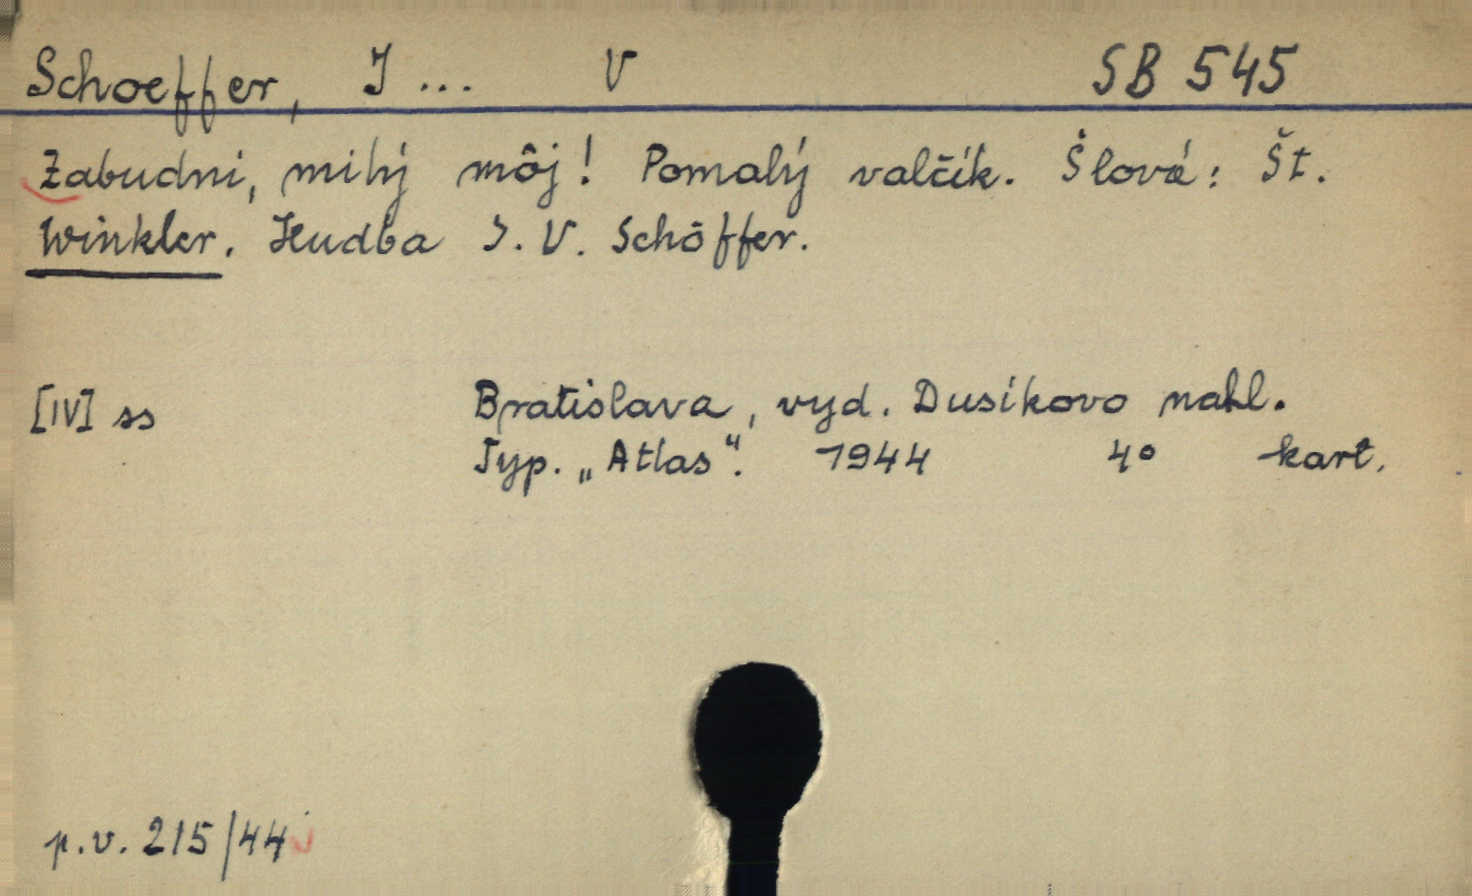 Schoeffer, J ... V SB 545
Zabudni, milý môj! Pomalý valčík. Slová: Št.
Winkler. Hudba J. V. Schöffer.
[IV] ss Bratislava, vyd. Dusíkovo nakl.
Typ. „Atlas". 1944 4° kart.
p.v. 215/44